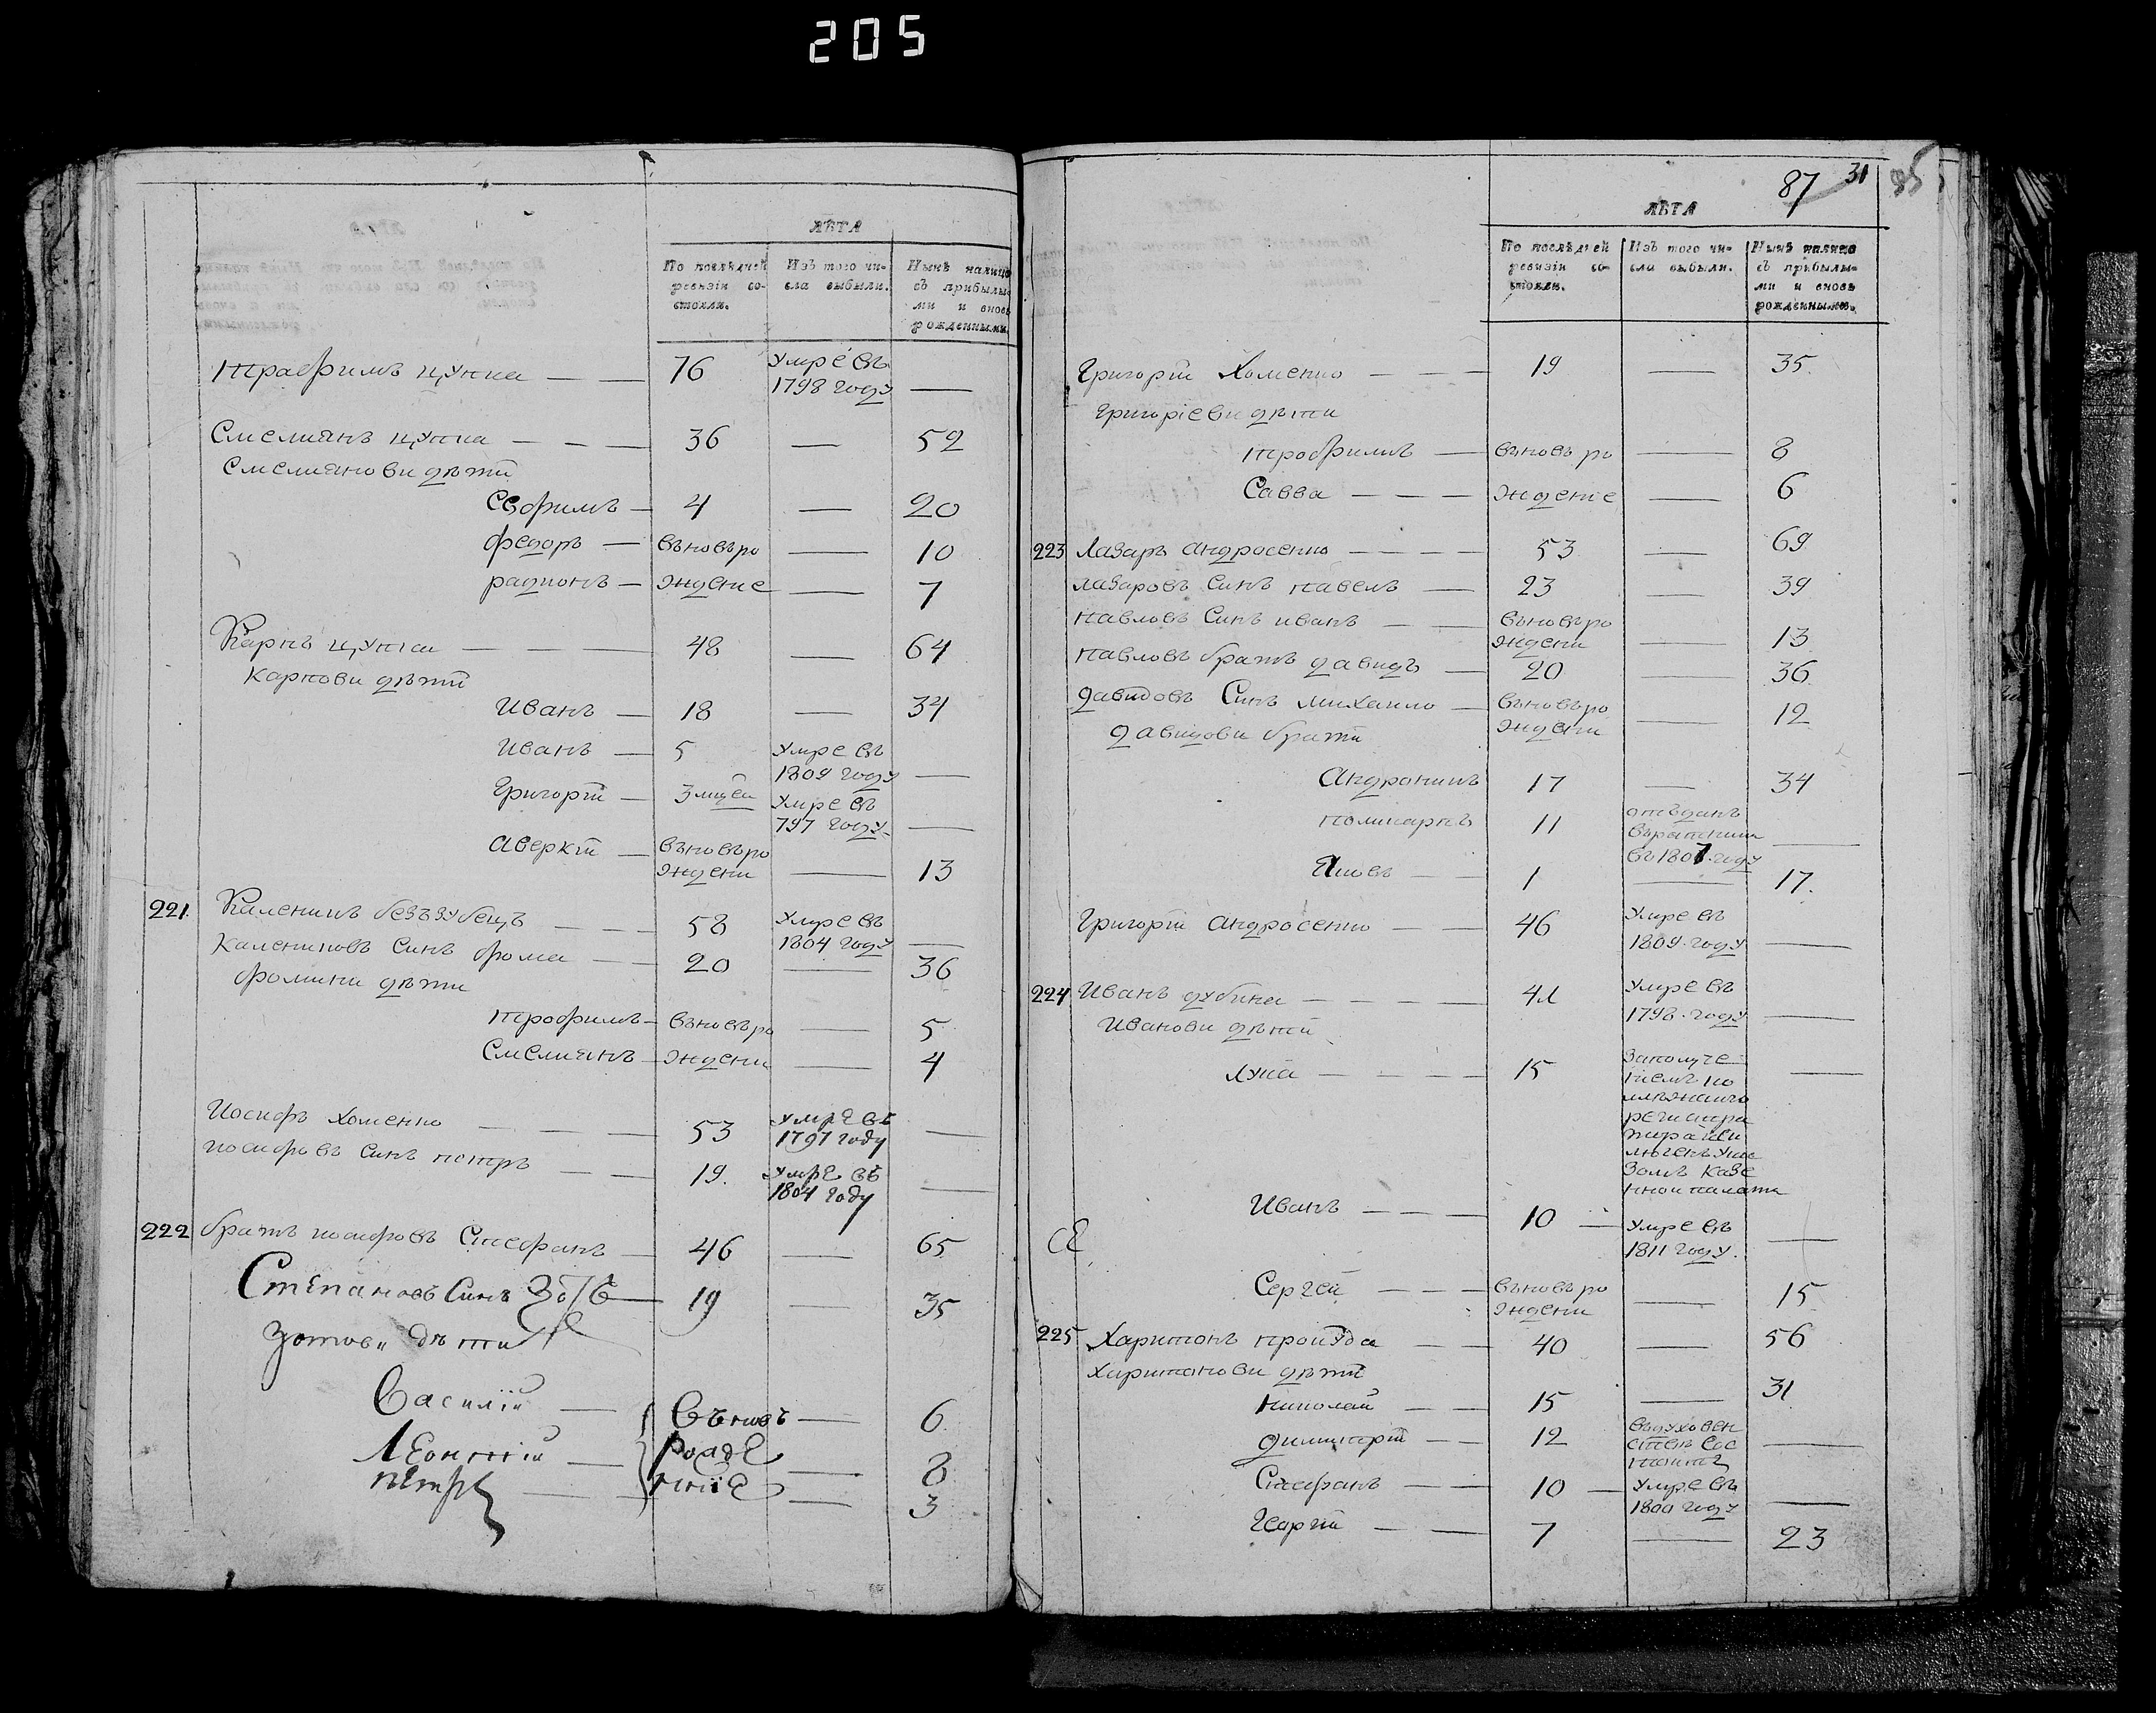 205
ЛѢТА
По послѣдней ревизіи со-стояли.
Изъ того чи-сла выбыли.
Нынѣ налицо съ прибылы-ми и вновь рожденными.
трофимъ цупка — — 76 умре въ 1798 году —
Смелиянъ цупка — — — 36 — 52
Смелиянови дѣти
Евфимъ — 4 — 20
федоръ — въновьро — 10
радионъ — ждение — 7
Карпъ цупка — — — 48 — 64
Карпови дѣти
Иванъ — 18 — 34
Иванъ — 5 умре въ 1809 году —
Григорій — 3 мцей умре въ 797 году —
Аверкій — въновьро ждени — 13
221. Каленикъ беззубецъ — — 58 умре въ 1804 году —
Калениковъ Синъ фома — — 20 — 36
фомини дѣти
трофимъ — въновьро — 5
Смелиянъ — ждени — 4
Иосифъ хоменко — — — 53 умре въ 1797 году —
иосифовъ Синъ петръ — — 19. умре въ 1804 году —
222 братъ иосифовъ Стефанъ — 46 — 65
Степановъ Синъ Зотъ — 19 — 35
Зотови дѣти
Василій — въновь — 6
Леонтій — рожде — 8
петръ — ніе — 3
87 31
35
ЛѢТА
По послѣдней ревизіи со-стояли.
Изъ того чи-сла выбыли.
Нынѣ налицо съ прибылы-ми и вновь рожденными.
Григорій Хоменко — — — 19 — 35.
Григоріеви дѣти
трофимъ — въновь ро — 8
Савва — — — ждение — 6
223 Лазаръ Андросенко — — — — 53 — 69
лазаровъ Синъ павелъ — 23 — 39
павловъ Синъ иванъ — — въновьро ждени — 13
павловъ братъ давидъ — 20 — 36
давидовъ Синъ михаило — въновьро ждени — 12
давидови брати
Андроникъ 17 — 34
поликарпъ 11 отъданъ въратники въ 1807 году —
Яковъ — — 1 — 17.
Григорій Андросенко — — 46 умре въ 1809 году —
224 Иванъ дубина — — — — 41 умре въ 1798 году —
Иванови дѣти
лука — — — — 15 заполуче ніемъ
регистра
казе нной палати —
Иванъ — — — 10 — умре въ 1811 году. —
Сергей — — — въновьро ждени — 15
225 Харитонъ пройда — — 40 — 56
харитонови дѣти
николай — — 15 — 31
димитрій — — 12 въдуховен —
Стефанъ — — 10 — умре въ 1800 году —
Георгій — — 7 — 23